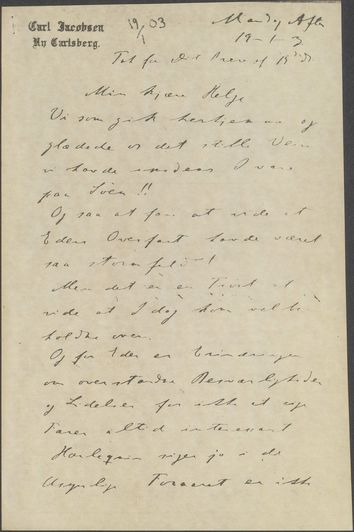 Carl Jacobsen
Ny Carlsberg.
19/1 03
Mandag Aften
19-1-3
Tak for Dit Brev af 15de ds
Min kjære Helge
Vi som gik herhjemme og
glædede os det stille Veir
vi havde medens I vare
paa Søen!!
Og saa at faa at vide at
Eders Overfart havde været
saa stormfuld!
Men det er en Trøst at
vide at I dog kom vel be
holdne over.
Og for Eder er Erindringen
om overstandne Besværligheder
og Lidelser for ikke at sige
Farer altid interessant
Harlequin siger jo i de
Usynlige Foraaret er ikke